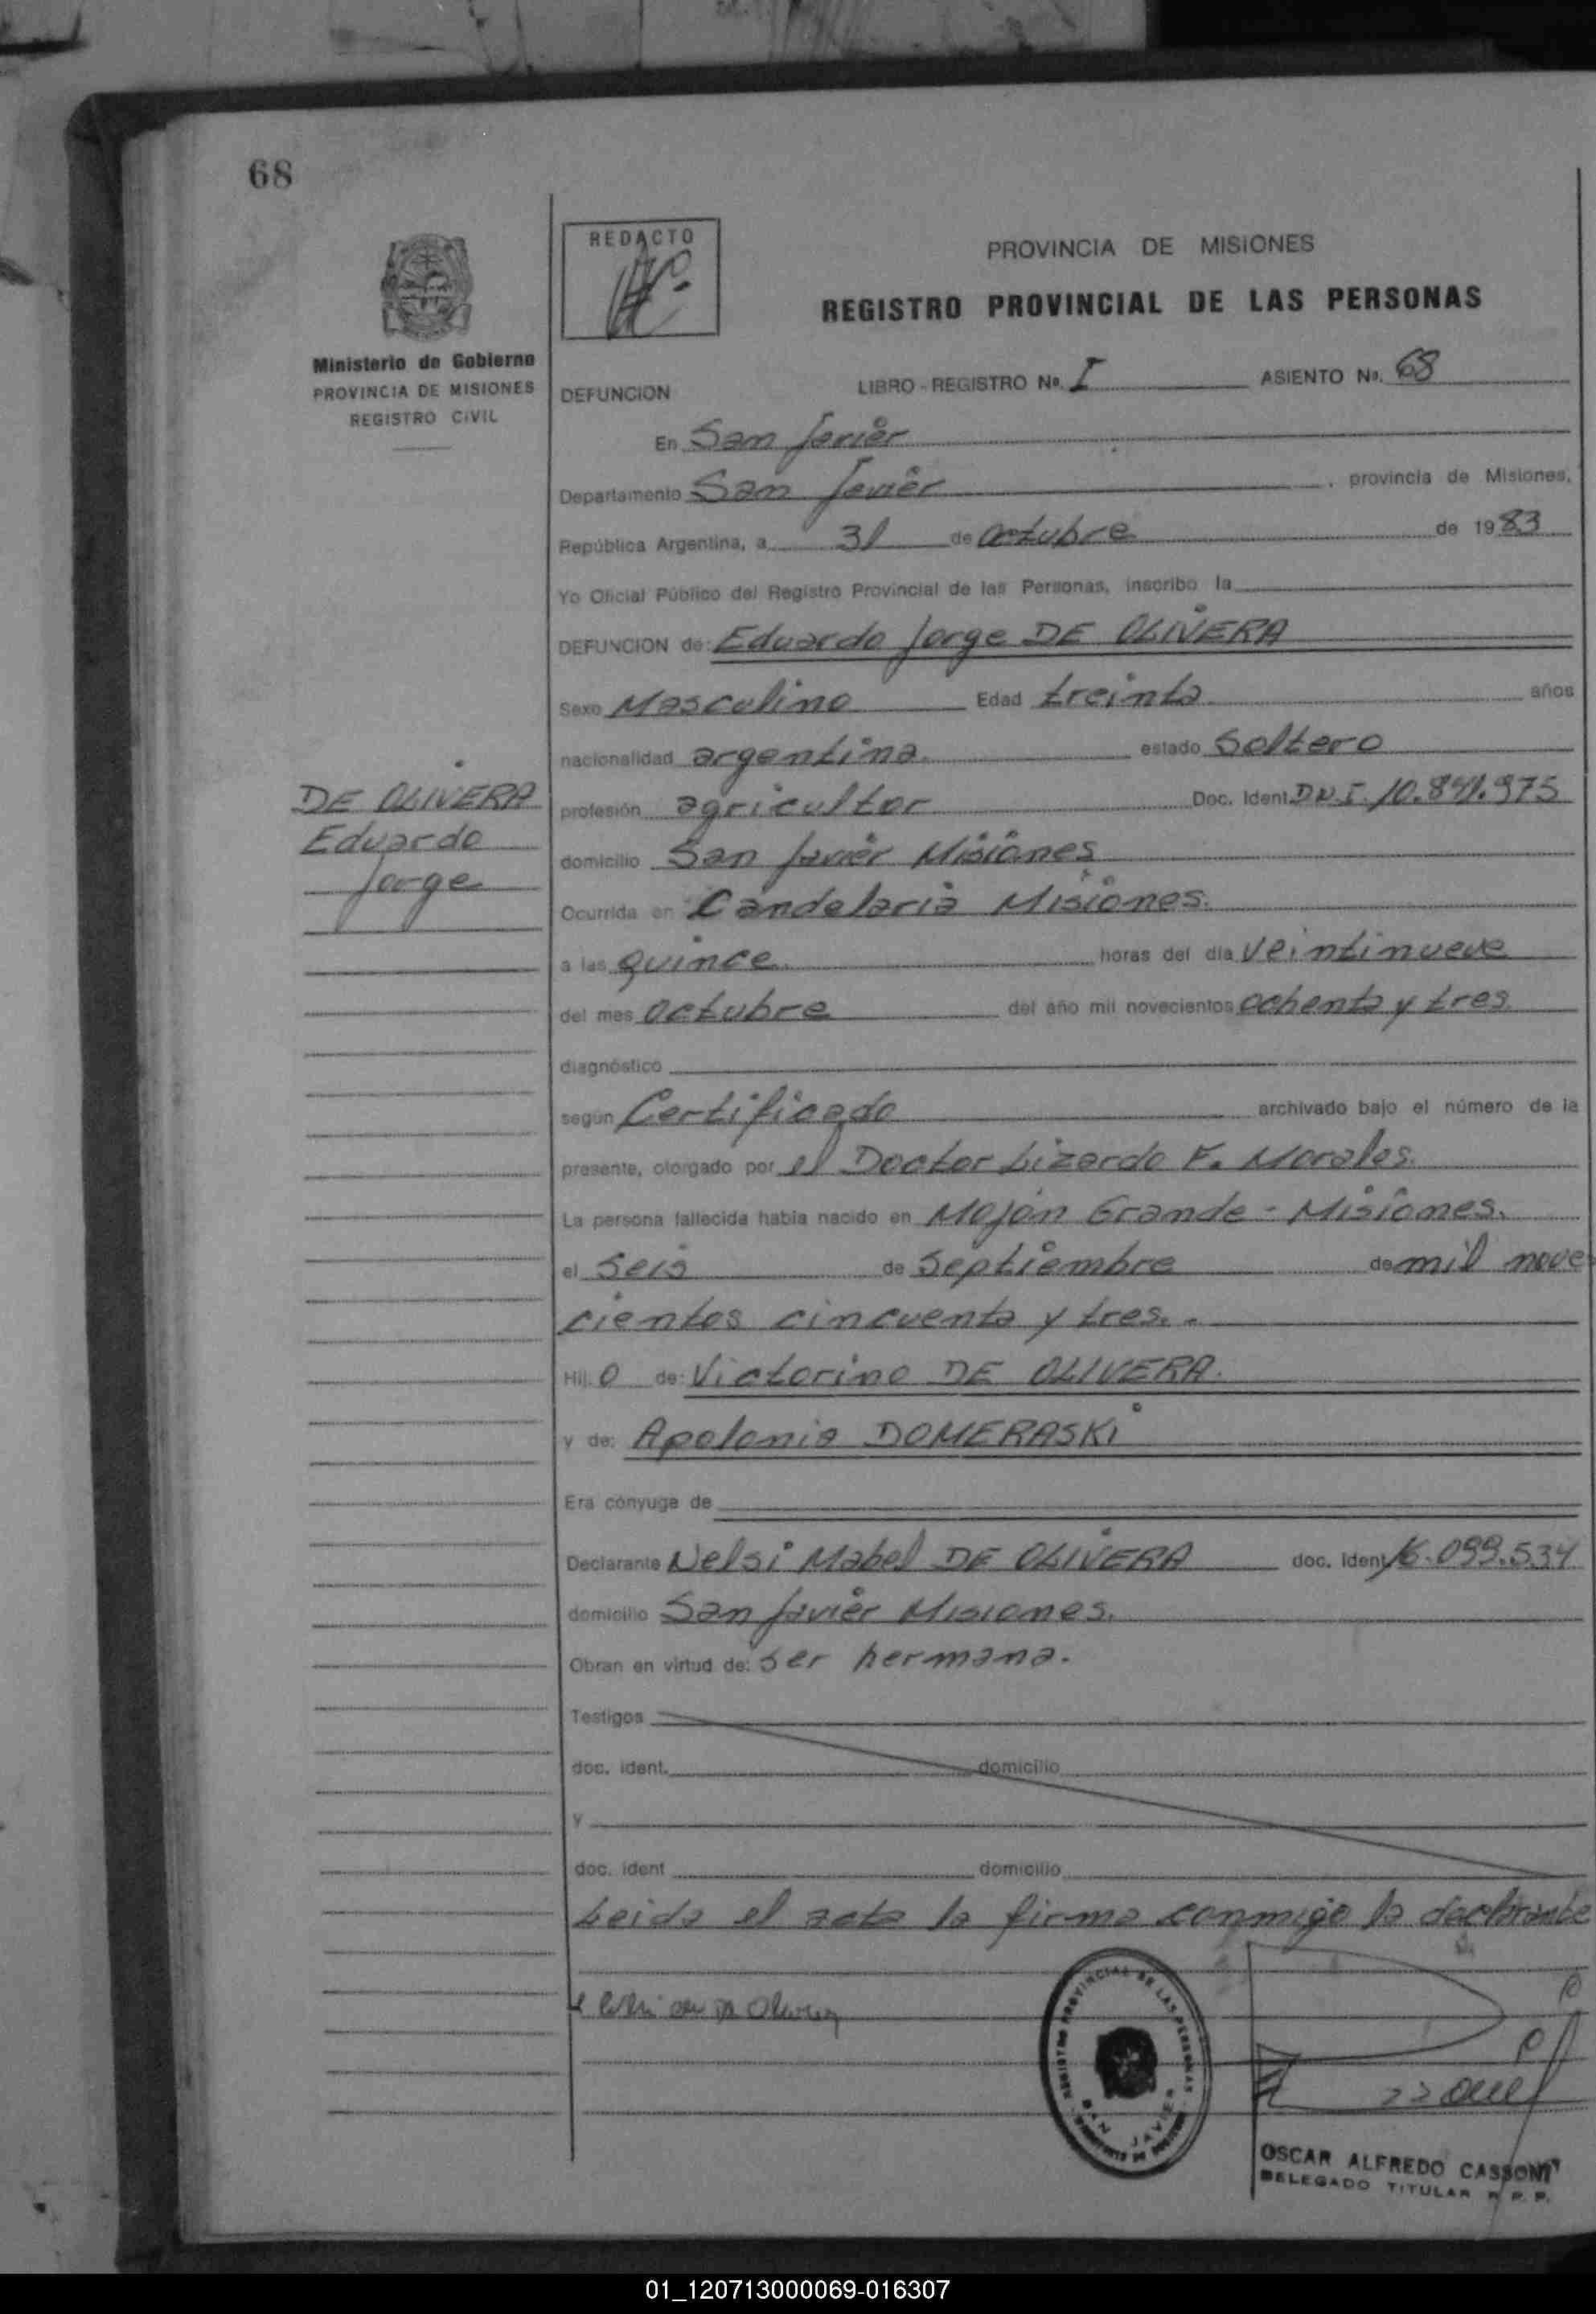 68
REDACTO
Ministerio de Gobierno
PROVINCIA DE MISIONES
REGISTRO CIVIL
PROVINCIA DE MISIONES
REGISTRO PROVINCIAL DE LAS PERSONAS
DEFUNCION LIBRO - REGISTRO Nº. I ASIENTO Nº. 68
En San Javier
Departamento San Javier, provincia de Misiones,
República Argentina, a 31 de octubre de 1983
Yo Oficial Público del Registro Provincial de las Personas, inscribo la
DEFUNCION de: Eduardo Jorge DE OLIVERA
Sexo Masculino Edad treinta años
nacionalidad argentina. estado Soltero
DE OLIVERA
Eduardo
Jorge
profesión agricultor Doc. Ident. D.N.I. 10.841.975
domicilio San Javier Misiones
Ocurrida en Candelaria Misiones.
a las quince. horas del día veintinueve
del mes octubre del año mil novecientos ochenta y tres.
diagnóstico
según Certificado archivado bajo el número de la
presente, otorgado por el Doctor Lizardo F. Morales.
La persona fallecida había nacido en Mojón Grande - Misiones.
el Seis de Septiembre de mil nove
cientos cincuenta y tres.
Hij o de: Victorino DE OLIVERA.
y de: Apolonia DOMERASKI
Era cónyuge de
Declarante Nelsi Mabel DE OLIVERA doc. ident 16.099.534
domicilio San Javier Misiones.
Obran en virtud de: ser hermana.
Testigos
doc. ident. domicilio
y
doc. ident domicilio
Leida el acta la firma conmigo la declarante
REGISTRO PROVINCIAL DE LAS PERSONAS
SAN JAVIER
OSCAR ALFREDO CASSONI
DELEGADO TITULAR R. P. P.
01_120713000069-016307